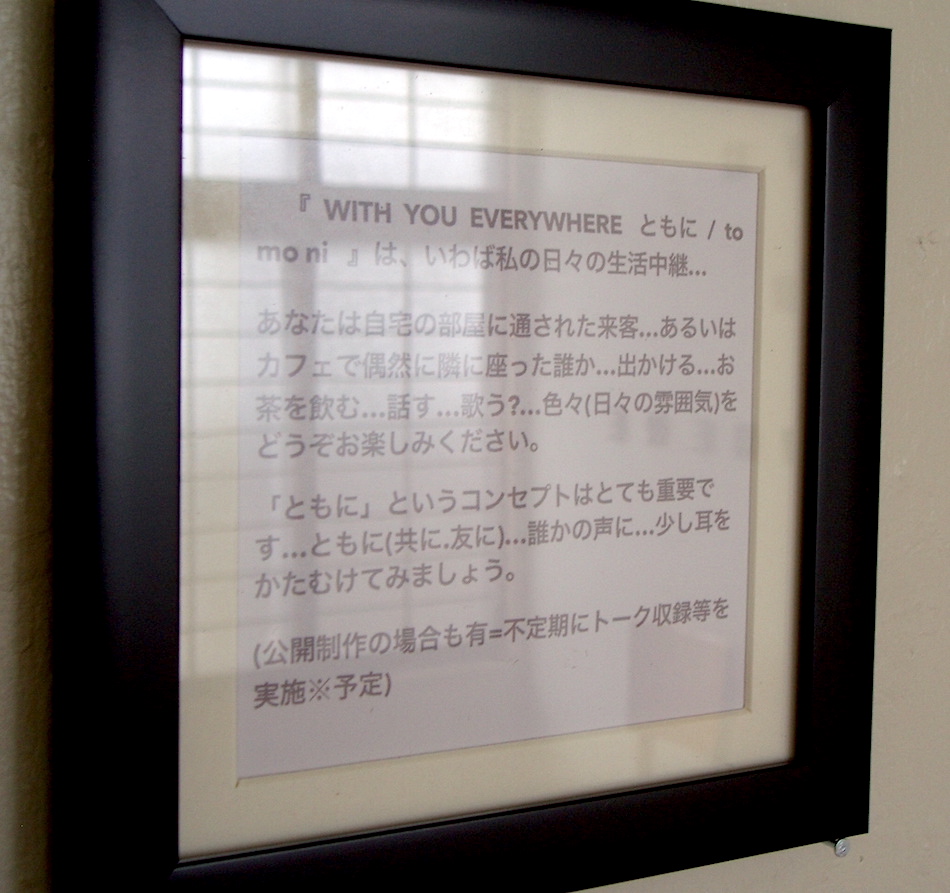 『 WITH YOU EVERYWHERE ともに / to
mo ni 』は、いわば私の日々の生活中継...
あなたは自宅の部屋に通された来客...あるいは
カフェで偶然に隣に座った誰か...出かける...お
茶を飲む...話す...歌う?...色々(日々の雰囲気)を
どうぞお楽しみください。
「ともに」というコンセプトはとても重要で
す...ともに(共に.友に)...誰かの声に...少し耳を
かたむけてみましょう。
(公開制作の場合も有=不定期にトーク収録等を
実施※予定)